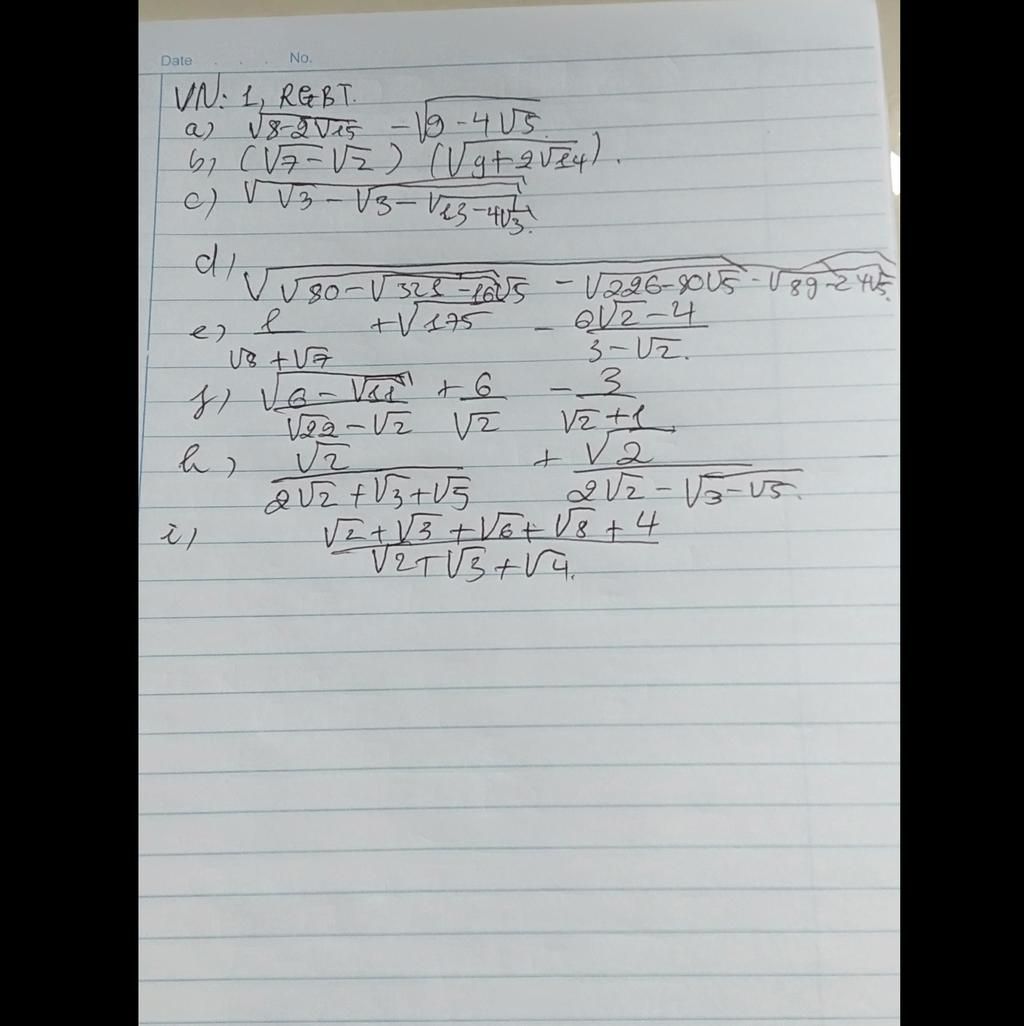 Date . . . No.
VN: 1, RGBT.
a) √8-2√15 - √9-4√5
b) (√7-√2) (√9+2√14).
c) √√3-√3-√13-4√3.
d) √√80-√321-16√5 - √226-80√5 - √89-24√5.
e) 1/√8+√7 + √175 - 6√2-4/3-√2.
f) √6-√11/√22-√2 + 6/√2 - 3/√2+1
h) √2/2√2+√3+√5 + √2/2√2-√3-√5.
i) √2+√3+√6+√8+4/√2+√3+√4.